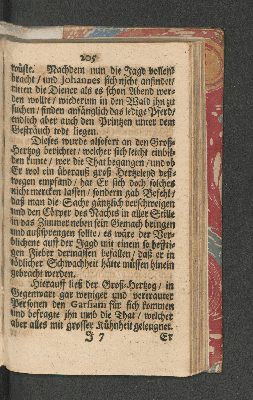 205
wüste. Nachdem nun die Jagd vollen-
bracht/ und Johannes sich nicht anfindet/
ritten die Diener als es schon Abend wer-
den wollte/ wiederum in den Wald ihn zu
suchen/ finden anfänglich das ledige Pferd/
endlich aber auch den Prinzen unter dem
Gesträuch tode liegen.
Dieses wurde alsofort an den Groß-
Hertzog berichtet/ welcher sich leicht einbil-
den kunte/ wer die That begangen/ und ob
Er wol ein überauß groß Hertzeleyd des-
wegen empfand/ hat Er sich doch solches
nicht mercken lassen/ sondern gab Befehl/
daß man die Sache gäntzlich verschweigen
und den Cörper des Nachts in aller Stille
in das Zimmer neben sein Gemach bringen
und außsprengen sollte/ es wäre der Ver-
blichene auff der Jagd mit einem so hefti-
gen Fieber dermassen befallen/ daß er in
tödlicher Schwachheit hätte müssen hinein
gebracht werden.
Hierauff ließ der Groß-Hertzog/ in
Gegenwart gar weniger und vertrauter
Personen den Garsiam für sich kommen
und befragte ihn umb die That/ welcher
aber alles mit grosser Kühnheit geleugnet.
J 7 Er